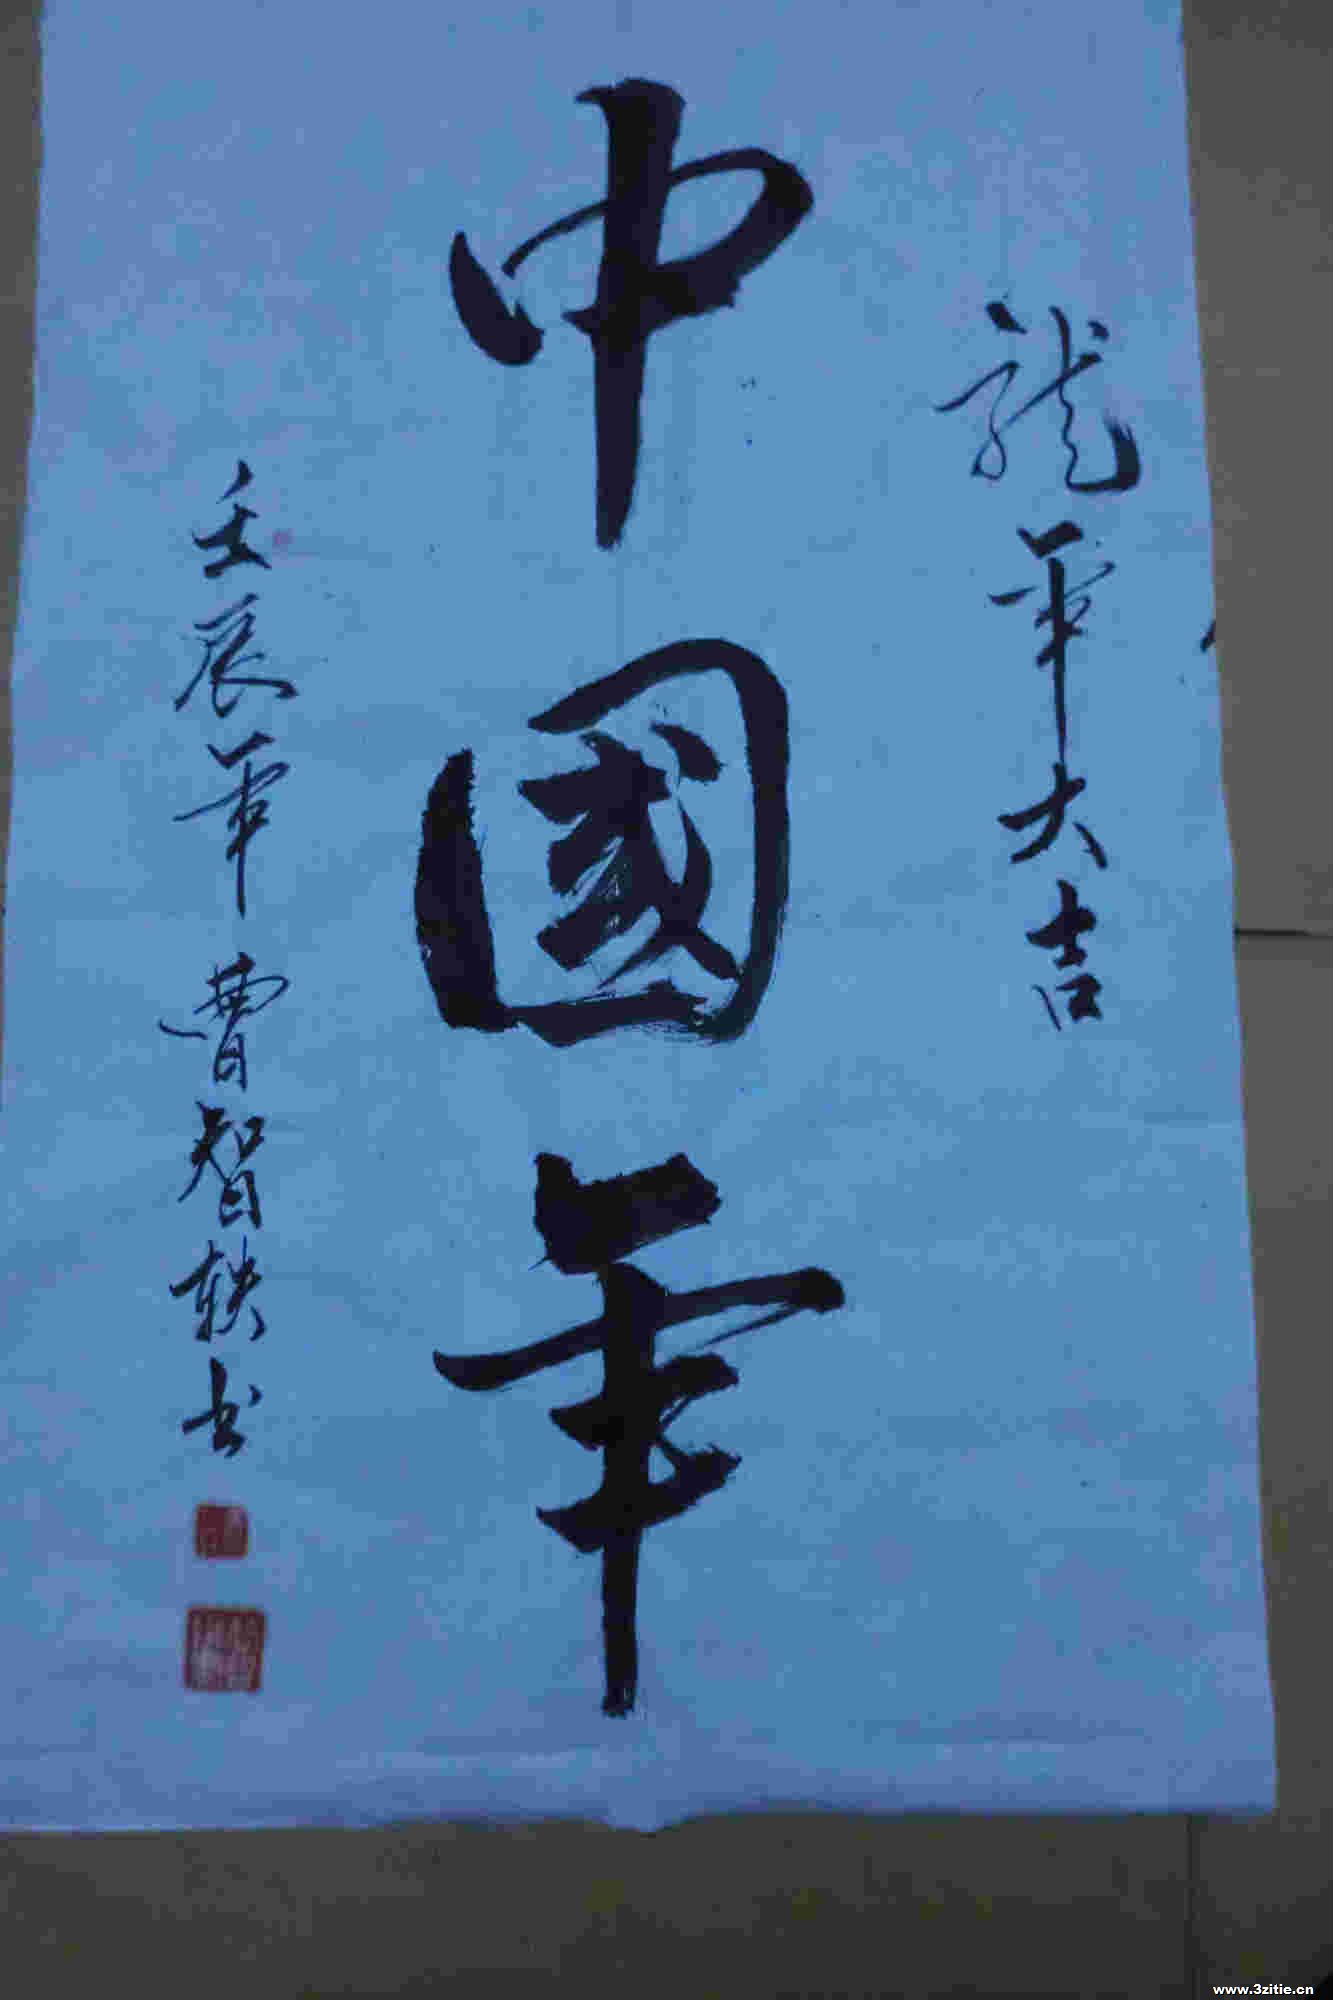 龍年大吉
中國年
壬辰年曹智軼书
www.3zitie.cn